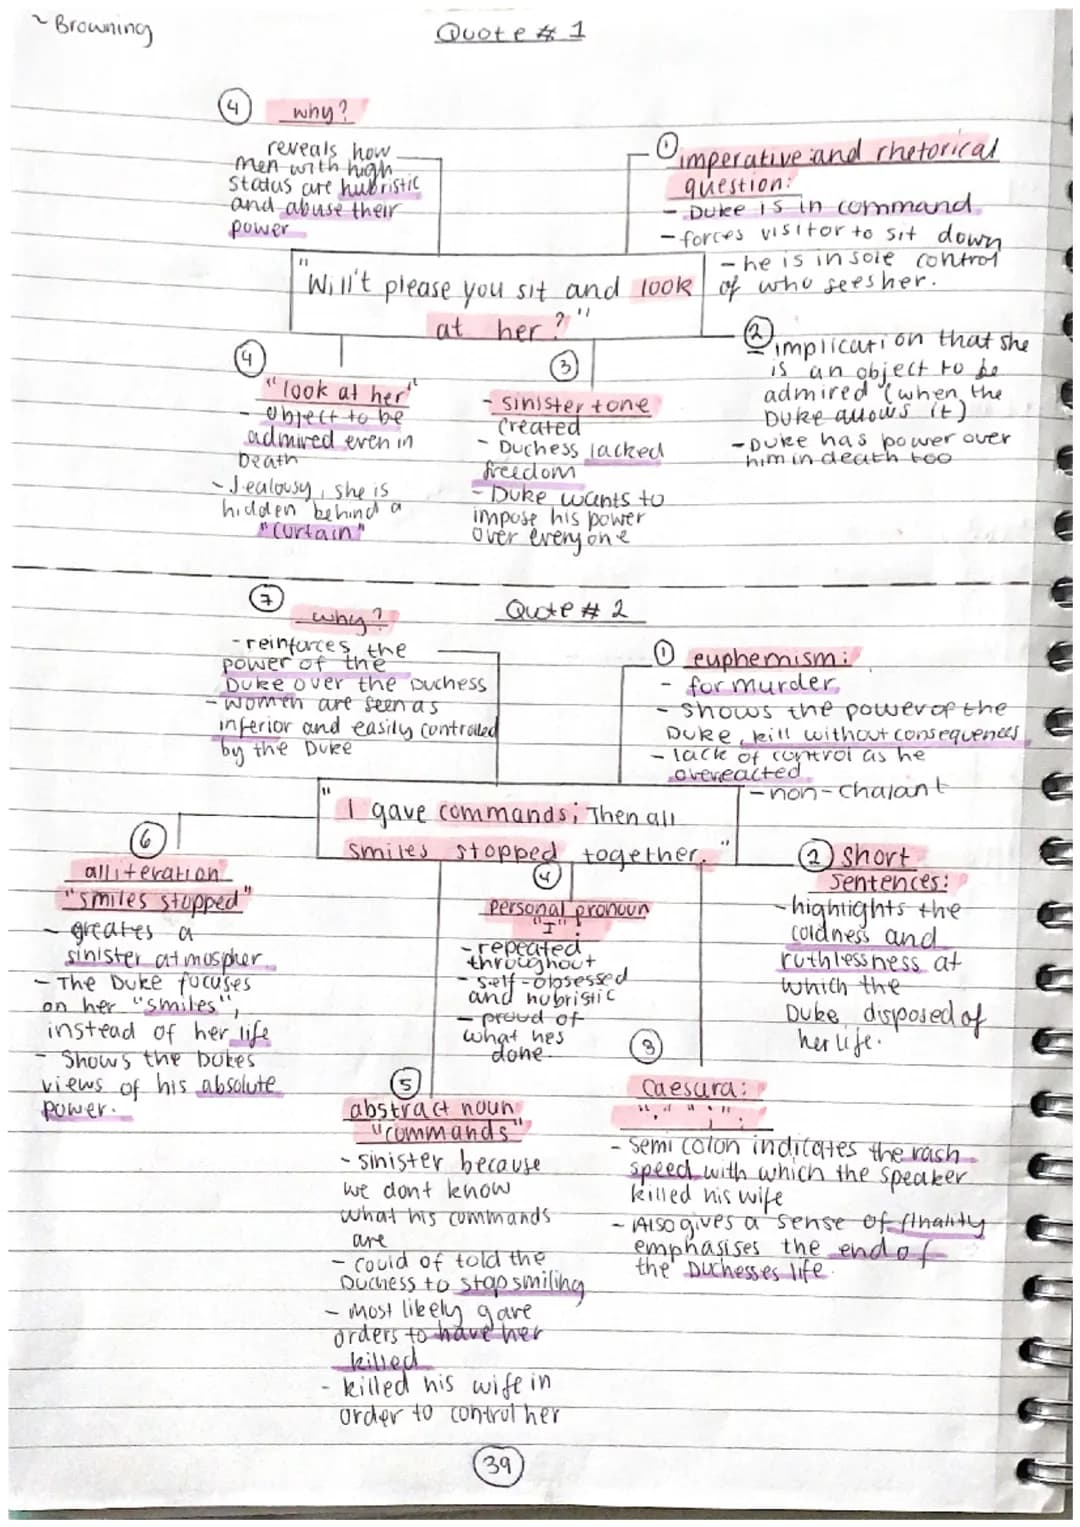 ~ Browning
Quote # 1
4 why?
reveals how
men with high
status are hubristic
and abuse their
power
1 imperative and rhetorical
question:
- Duke is in command
- forces visitor to sit down
- he is in sole control
of who sees her.
"Will't please you sit and look
at her?"
2 implication that she
is an object to be
admired (when the
Duke allows it)
- Duke has power over
him in death too
4
"look at her"
- object to be
admired even in
Death
- Jealousy, she is
hidden behind a
"curtain"
3
- sinister tone
created
- Duchess lacked
freedom
- Duke wants to
impose his power
over everyone
Quote # 2
7 why?
- reinforces the
power of the
Duke over the Duchess
- women are seen as
inferior and easily controlled
by the Duke
1 euphemism:
- for murder
- shows the power of the
Duke, kill without consequences
- lack of control as he
overeacted
- non-chalant
"I gave commands; Then all
smiles stopped together."
6
alliteration
"smiles stopped"
- greates a
sinister atmospher
- The Duke focuses
on her "smiles",
instead of her life
- Shows the Dukes
views of his absolute
power.
4
personal pronoun
"I":
- repeated
throughout
- self-obsessed
and hubristic
- proud of
what hes
done.
2 short
sentences:
- highlights the
coldness and
ruthlessness at
which the
Duke disposed of
her life.
5
abstract noun
"commands"
- sinister because
we dont know
what his commands
are
- could of told the
Duchess to stop smiling
- most likely gave
orders to have her
killed
- killed his wife in
order to control her
3
Caesura:
"." ";":
- Semi colon indicates the rash
speed with which the speaker
killed his wife
- Also gives a sense of finality
emphasises the end of
the Duchesses life.
39